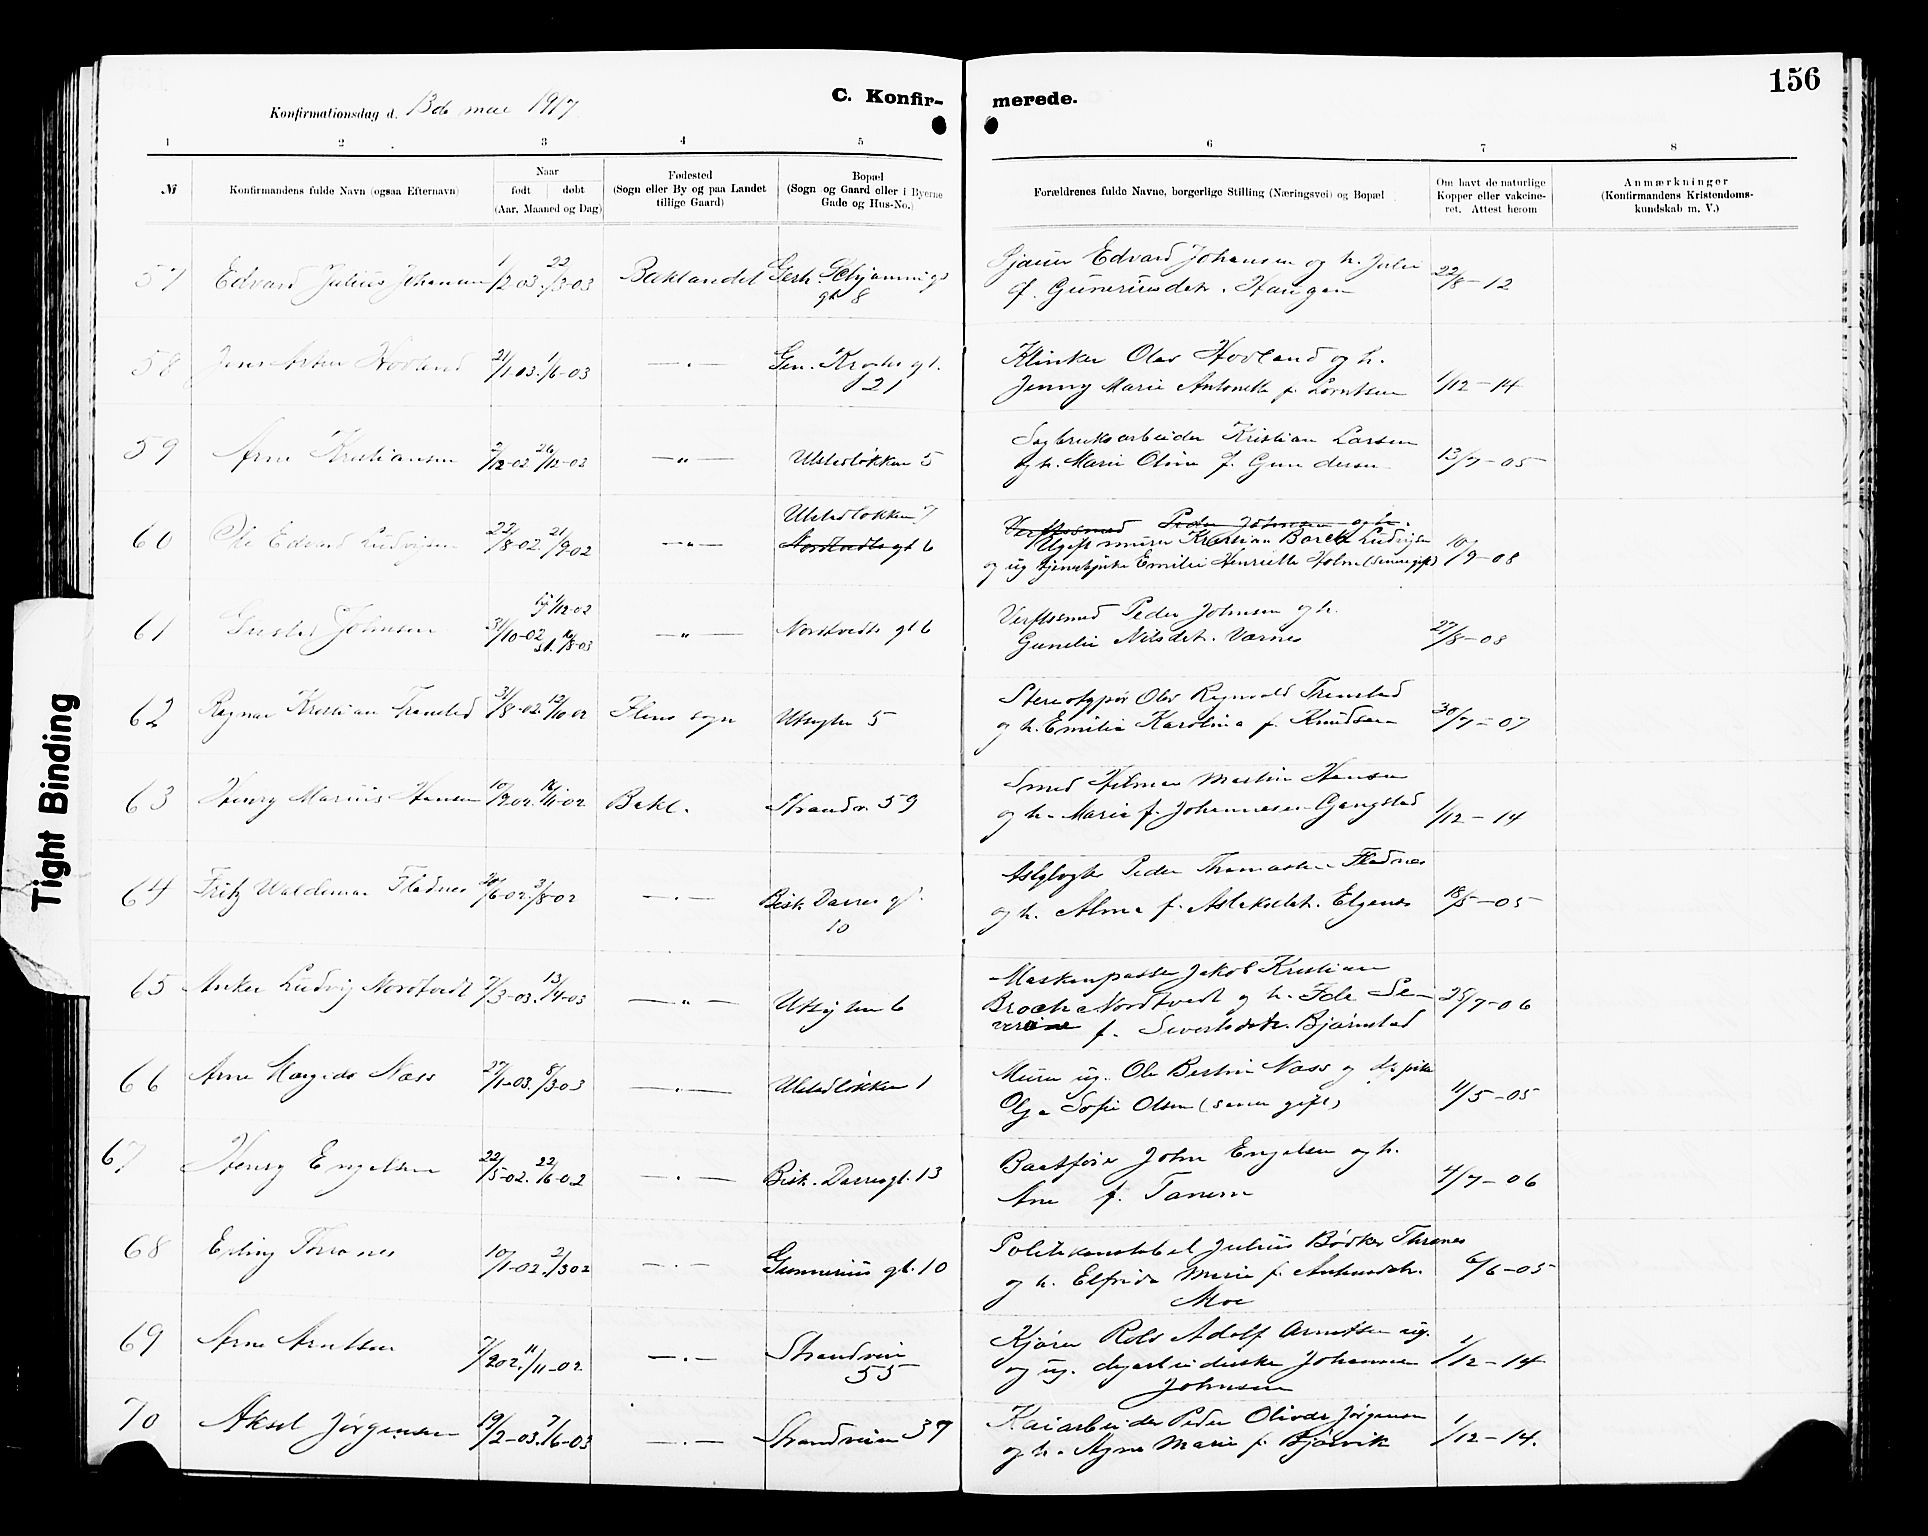 156
C. Konfir- merede.
Konfirmationsdag d. 13de mai 1917
1 2 3 4 5 6 7 8
№
Konfirmandens fulde Navn (ogsaa Efternavn)
Naar
født døbt
(Aar, Maaned og Dag)
Fødested
(Sogn eller By og paa Landet
tillige Gaard)
Bopæl
(Sogn og Gaard eller i Byerne
Gade og Hus-No.)
Forældrenes fulde Navne, borgerlige Stilling (Næringsvei) og Bopæl
Om havt de naturlige
Kopper eller vakcine-
ret. Attest herom
Anmærkninger
(Konfirmandens Kristendoms-
kundskab m. V.)
57 Edvard Julius Johansen 1/2 03. 22/3-03 Baklandet Gerh. Schjønnings
gt 8
Edvard Johansen og h. Julie
f. Guneriusdtr. Haugan
22/8-12
58 Jens Hovland 21/1-03. 1/6-03 —"— Gen. Krohs gt.
21
Klinker Olav Hovland og h.
Jenny Marie Antonette f. Lorntsen
1/12-14
59 Arne Kristiansen 2/12-02 26/12-02 —"— Ulstadløkken 5
Sagbruksarbeider Kristian Larsen
og h. Marie Oline f. Gundersen
13/7-05
60 Ole Edvard Ludvigsen 22/8-02. 21/9-02 —"— Ulstadløkken 7
Nordtvedts gt 6
Verftssmed Peder Johnsen og h.
Ugift murer Kristian Borch Ludvigsen
og ug tjenestpike Emilie Henriette Holm (senere gift)
10/9-08
61 Johnsen 31/10-02 1/12-02
st. 16/8-03 —"— Nordtvedts gt 6
Verftssmed Peder Johnsen og h.
Gunelie Nilsdtr. Værnes
27/8-08
62 Ragnar Kristian Trønstad 31/8-02. 12/10 02 Ilens sogn Utsigten 5
Stereotypør Olav Ragnvald Trønstad
og h. Emilie Karolina f. Knudsen
30/7-07
63 Henry Marius Hansen 10/9 02. 16/11-02 Bakl. Strandv. 59
Smed Hilmar Martin Hansen
og h. Marie f. Johannesen Gangstad
1/12-14
64 Fritz Waldemar Fladnes 20/6-02. 3/8-02 —"— Bisk. Darres gt.
10
Peder Thomassen Fladnes
og h. Alma f. Aslaksdtr. Elgenes
18/5-05
65 Anker Ludvig Nordtvedt 2/3-03. 13/4-03 —"— Utsigten 6
Maskinpasser Jakob Kristian
Broch Nordtvedt og h. Ida Se-
verine f. Sivertsdtr. Bjørnstad
25/7-06
66 Arne Næss 27/1-03. 8/3 03 —"— Ulstadløkken 1
Murer ug. Ole Bertin Næss og pike
Olga Sofie Olsen (senere gift)
11/5-05
67 Henry Engelsen 22/5-02. 22/6-02 —"— Bisk. Darres gt. 13
Baatfører John Engelsen og h.
Ane f. Tanem
4/7-06
68 Erling Torsnes 10/1-02. 2/3 02 —"— Gunnerius gt. 10
Politikonstabel Julius Bødker
og h. Elfrida Marie f.
Moe
6/6-05
69 Arne Arntsen 7/9 02. 11/11-02 —"— Strandveien
55
Kjører Adolf Arntsen ug.
og ug. Johanna
Johnsen
1/12-14
70 Aksel Jørgensen 19/2-03. 7/6-03 —"— Strandveien 37
Kaiarbeider Peder Oliver Jørgensen
og h. Marie f. Bjørvik
1/12-14.
Tight Binding